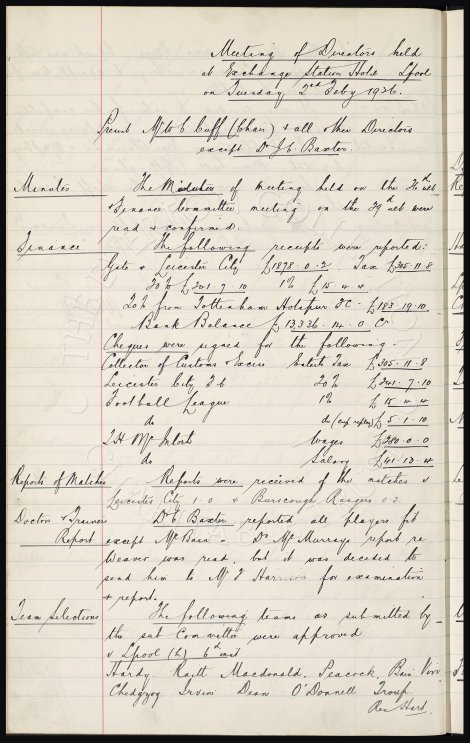 Meeting of Directors held
at Exchange Station Hotel Lpool
on Tuesday 2nd Feby 1926.
Present Mr W C Cuff (Chair) & all other Directors
except Dr J C Baxter.
Minutes The Minutes of meeting held on the 26th ult
& Finance Committee meeting on the 29th ult were
read & confirmed.
Finance The following receipts were reported:
Gate v Leicester City £1878.0.2. Tax £305.11.8
20% £241.7.10 1% £15.4.4
20% from Tottenham Hotspur FC. £183.19.10.
Bank Balance £13,336.14.0 Cr
Cheques were signed for the following-
Collector of Customs & Excise Entert Tax £305.11.8
Leicester City F C 20% £241.7.10
Football League 1% £15.4.4
do do (cup replay) £5.1.10
T.H. McIntosh Wages £280.0.0
do Salary £41.13.4
Reports of Matches Reports were received of the matches v
Leicester City 1.0 & Burscough Rangers 0.3
Doctor & Trainers Dr Baxter reported all players fit
Report except McBain - Dr McMurrays report re
Weaver was read but it was decided to
send him to Mr T Harrison for examination
& report.
Team Selections The following teams as submitted by
the sub Committee were approved
v Lpool (h) 6th inst
Hardy. Raitt Macdonald. Peacock, Bain Virr
Chedgzoy Irvine Dean O'Donnell Troup.
Res Hart.